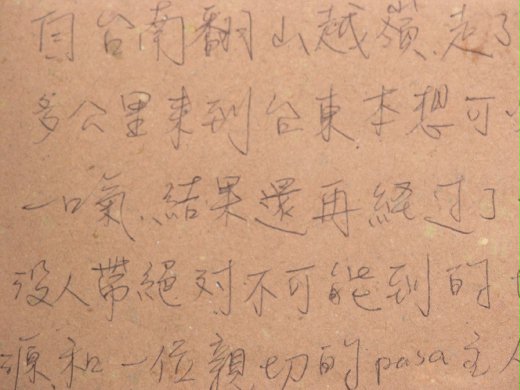 自台南翻山越嶺走了
多公里来到台東本想可以
一口氣、結果還再経过了
没人帶絕对不可能到的
源和一位親切的pasa主人